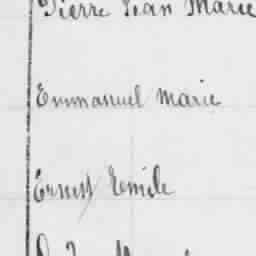 Pierre Jean Marie
Emmanuel Marie
Ernest Emile